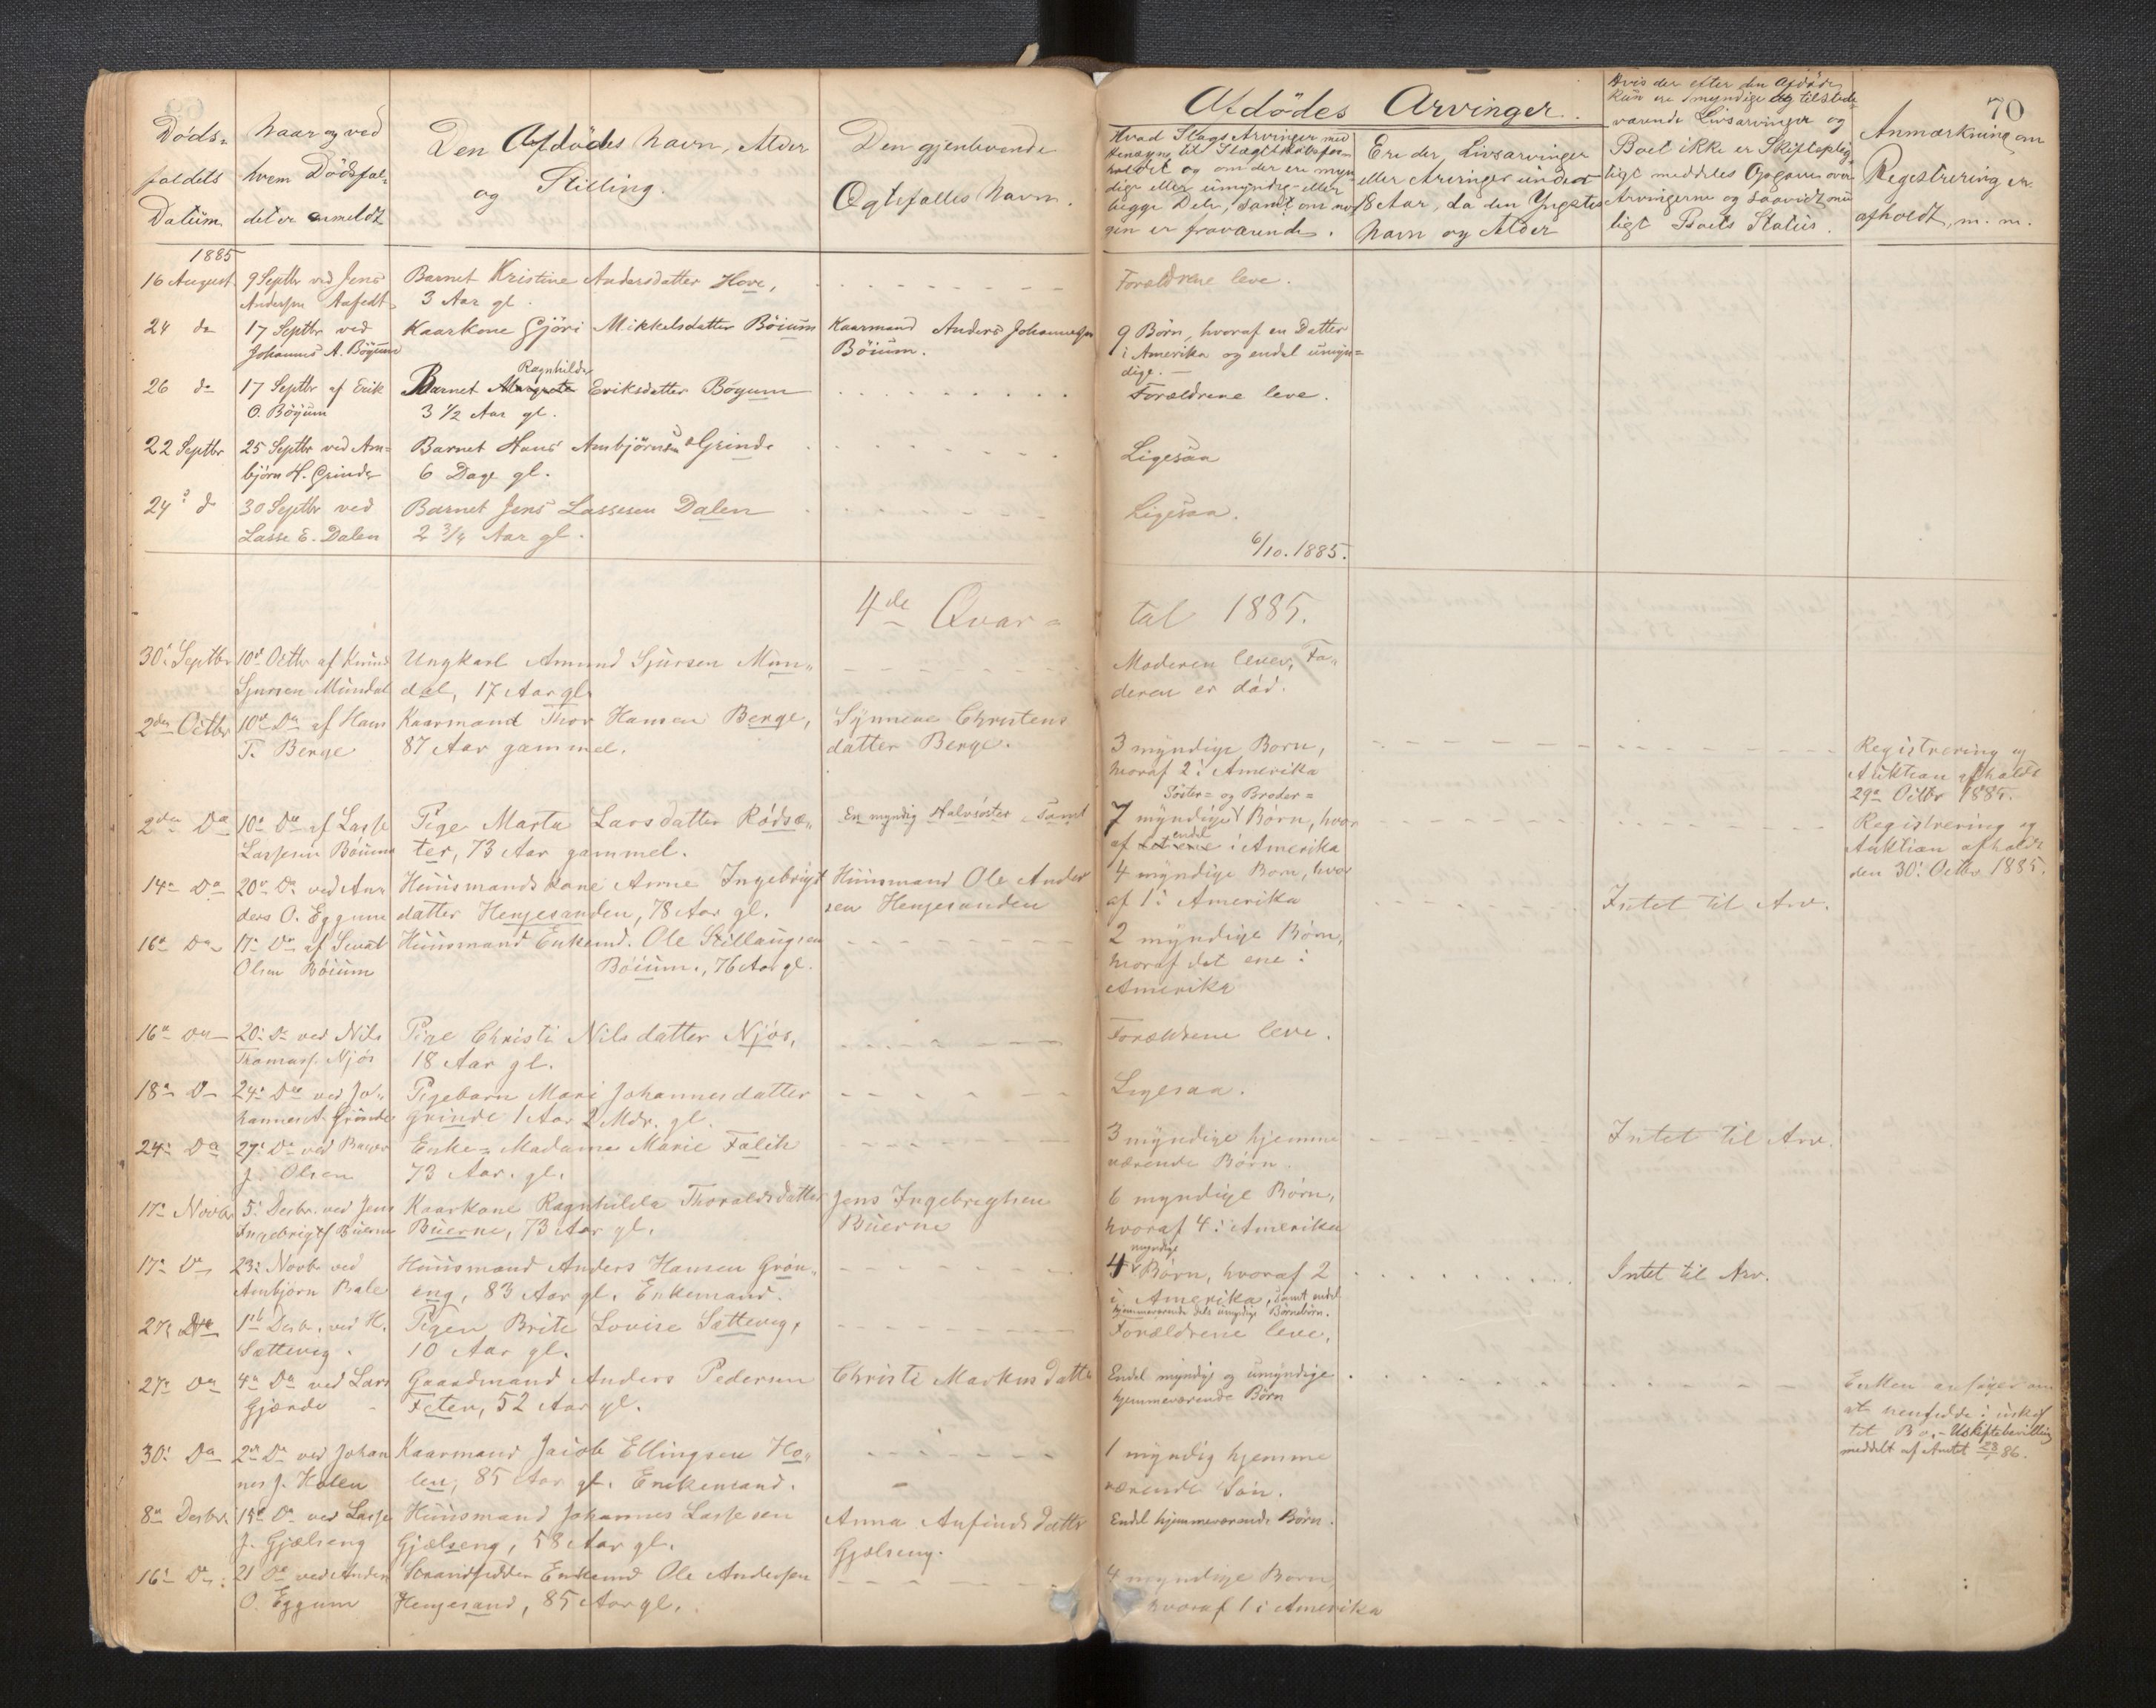 70
Døds-
faldets
Datum
Naar og ved
hvem Dødsfal-
det er anmeldt
Den Afdødes Navn, Alder
og Stilling.
Den gjenlevende
Ægtefælles Navn.
Afdødes Arvinger.
Hvad Slags Arvinger med
Hensyn til Slægtskabsfor-
holdet og om der ere myn-
dige eller umyndige eller
begge Dele, samt om no-
gen er fraværende.
Ere der Livsarvinger
eller Arvinger under
18 Aar, da den Yngstes
Navn og Alder
Hvis der efter den Afdøde
kun ere myndige og tilstede-
værende Livsarvinger og
Boet ikke er Skiftepligt-
ligt meddeles Opgave over
Arvingerne og saavidt mu-
ligt Boets Status.
Anmærkning om
Registrering er
afholdt, m. m.
1885
16 August
9 Septbr ved Jens
Andersen Aafedt
Barnet Kristine Andersdatter Hove,
3 Aar gl.
Forældrene leve.
24 do
17 Septbr ved
Johannes A. Böyum
Kaarkone Gjöri Mikkelsdatter Böium
Kaarmand Anders Johannesen
Böium.
9 Börn, hvoraf en Datter
i Amerika og endel umyn-
dige.
26 do
17 Septbr af Erik
O. Böyum
Ragnhilda
Barnet Eriksdatter Böyum
3 1/2 Aar gl.
Forældrene leve.
22 Septbr
25 Septbr ved Am-
björn H. Grinde
Barnet Hans Ambjörnsen Grinde
6 Dage gl.
Ligesaa
24 do
30 Septbr ved
Lasse E. Dalen
Barnet Jens Lassesen Dalen
2 3/4 Aar gl.
Ligesaa.
6/10. 1885.
4de Qvar-
tal 1885.
30 Septbr
10de Octbr af Knud
Sjursen Mundal
Ungkarl Amund Sjursen Mun-
dal, 17 Aar gl.
Moderen lever, Fa-
deren er död.
2den Octbr
10de Do af Hans
T. Berge
Kaarmand Thor Hansen Berge,
87 Aar gammel.
Synneve Christens
datter Berge.
3 myndige Born,
hvoraf 2 i Amerika
Registrering og
Auktion afholdt
29de Octbr 1885.
2den Do
10de Do af Lasse
Lassesen Böium
Pige Marta Larsdatter Rödsæ-
ter, 73 Aar gammel.
En myndig Halvsöster, samt
Söster- og Broder-
7 myndige Börn, hvor
af endel i Amerika
Registrering og
Auktion afholdt
den 30 Octbr 1885.
14de Do
20de Do ved An-
ders O. Eggum
Huusmandskone Anne Ingebrigt
datter Henjesanden, 78 Aar gl.
Huusmand Ole Ander
sen Henjesanden
4 myndige Born, hvor
af 1 i Amerika
Intet til Arv.
16de Do
17de Do af Sivat
Olsen Böium
Huusmand Enkemd. Ole Stillaugsen
Böium, 76 Aar gl.
2 myndige Börn,
hvoraf det ene i
Amerika
16de Do
20de Do ved Nils
Thomass. Njös
Pige Christi Nilsdatter Njös,
18 Aar gl.
Forældrene leve.
18de Do
24de Do ved Jo-
hannes A. Grinde
Pigebarn Mari Johannesdatter
Grinde 1 Aar 2 Mdr. gl.
Ligesaa.
24 Do
27 Do ved
J. Olsen
Enke-Madame Marie Falch
73 Aar. gl.
3 myndige hjemme
værende Börn.
Intet til Arv.
17 Novbr
5 Decbr. ved Jens
Ingebrigts Buerne
Kaarkone Ragnhilda Thoraldsdatter
Buerne, 73 Aar gl.
Jens Ingebrigtsen
Buerne
6 myndige Börn,
hvoraf 4 i Amerika
17 Do
23 Novbr ved
Ambjörn Bale
Huusmand Anders Hansen Grön-
eng, 83 Aar gl. Enkemand.
myndige
4 Börn, hvoraf 2
i Amerika, samt endel
hjemmeværende dels umyndige Börnebörn.
Intet til Arv.
27 Do
1ste Decbr. ved H.
Sættevig.
Pigen Brite Lovise Sættevig,
10 Aar gl.
Forældrene leve.
27 Do
4de Do ved Lars
Gjærde
Gaardmand Anders Pedersen
Feten, 52 Aar gl.
Christi Markusdatter
Endel myndige og umyndige
hjemmeværende Börn
Enken ansöger om
at hensidde i uskif
tet Bo. - Uskiftebevilling
meddelt af Amtet 86.
30 Do
2den Do ved Johan
nes J. Holen
Kaarmand Jacob Ellingsen Ho-
len, 85 Aar gl. Enkemand.
1 myndig hjemme
værende Sön.
8de Decbr
15de Do ved Lasse
J. Gjælseng
Huusmand Johannes Lassesen
Gjælseng, 58 Aar gl.
Anna Anfindsdatter
Gjælseng.
Endel hjemmeværende Börn.
16 Do
21 Do ved Anders
O. Eggum
Strandsidder Enkemd Ole Andersen
Henjesand, 85 Aar gl.
4 myndige Born,
hvoraf 1 i Amerika